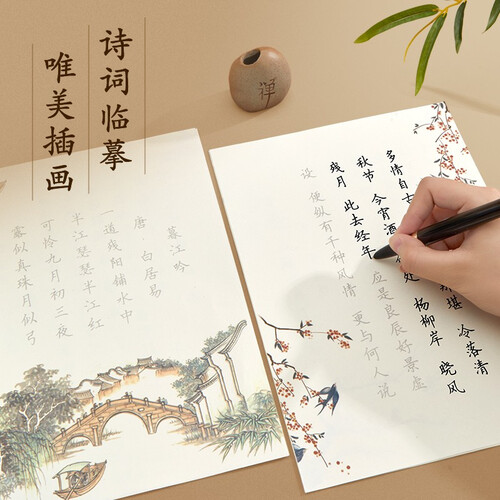 诗词临摹
唯美插画
禪
暮江吟
唐·白居易
一道残阳铺水中
半江瑟瑟半江红
可怜九月初三夜
露似真珠月似弓
多情自古 堪 冷落清
秋节 今宵酒 处 杨柳岸 晓风
残月 此去经年 应是良辰好景虚
设 便纵有千种风情 更与何人说